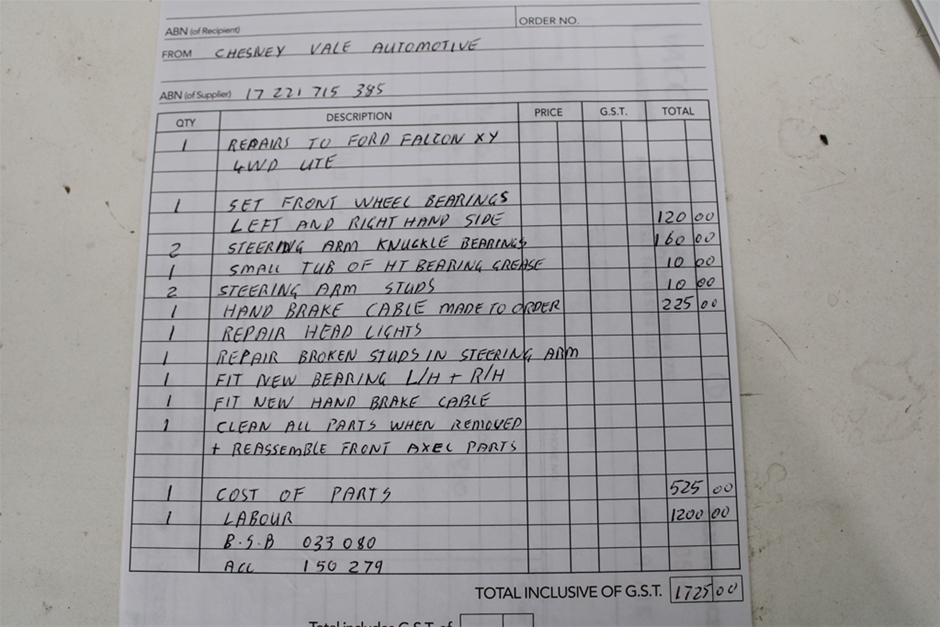 ABN (of Recipient) ORDER NO.
FROM CHESNEY VALE AUTOMOTIVE
ABN (of Supplier) 17 221 715 385
QTY DESCRIPTION PRICE G.S.T. TOTAL
1 REPAIRS TO FORD FALCON XY
4WD UTE
1 SET FRONT WHEEL BEARINGS
LEFT AND RIGHT HAND SIDE 120 00
2 STEERING ARM KNUCKLE BEARINGS 160 00
1 SMALL TUB OF HT BEARING GREASE 10 00
2 STEERING ARM STUDS 10 00
1 HAND BRAKE CABLE MADE TO ORDER 225 00
1 REPAIR HEAD LIGHTS
1 REPAIR BROKEN STUDS IN STEERING ARM
1 FIT NEW BEARING L/H + R/H
1 FIT NEW HAND BRAKE CABLE
1 CLEAN ALL PARTS WHEN REMOVED
+ REASSEMBLE FRONT AXEL PARTS
1 COST OF PARTS 525 00
1 LABOUR 1200 00
B.S.B 033 080
ACC 150 279
TOTAL INCLUSIVE OF G.S.T. 1725 00
Total includes G.S.T. of